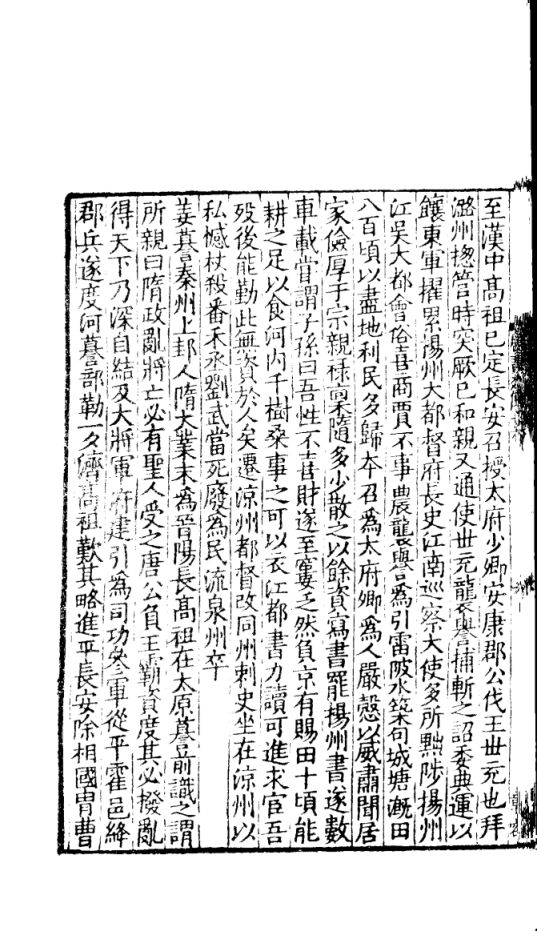 至漢中髙祖已定長安召授太府少卿安康郡公伐王世充也拜
潞州揔管時突厥已和親又通使世充襲譽捕斬之詔委典運以
饟東軍擢累揚州大都督府長史江南巡察大使多所黜陟揚州
江吳大都會俗喜商賈不事農襲譽爲引雷陂水築句城塘漑田
八百頃以盡地利民多歸本召爲太府卿爲人嚴慤以威肅聞居
家儉厚于宗親祿稟隨多少散之以餘資寫書罷揚州書遂數
車載嘗謂子孫曰吾性不喜財遂至窶乏然負京有賜田十頃能
耕之足以食河內千樹桑事之可以衣江都書力讀可進求官吾
歿後能勤此無資於人矣遷涼州都督改同州刺史坐在涼州以
私憾杖殺番禾丞劉武當死廢爲民流泉州卒
姜謩秦州上邽人隋大業末爲晉陽長髙祖在太原謩前識之謂
所親曰隋政亂將亡必有聖人受之唐公負王霸資度其必撥亂
得天下乃深自結及大將軍府建引爲司功參軍從平霍邑絳
郡兵遂度河謩部勒一夕濟髙祖歎其略進平長安除相國胄曹